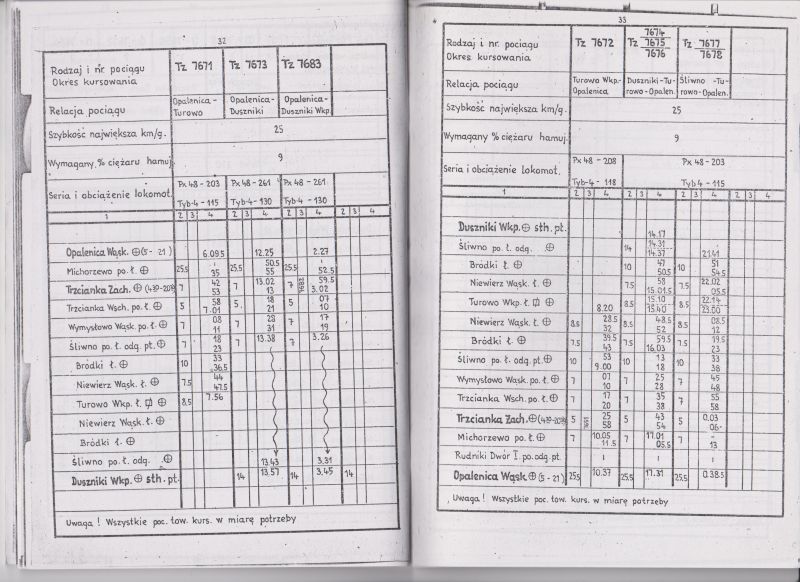 32
Rodzaj i nr. pociągu Tz 7671 Tz 7673 Tz 7683
Okres kursowania
Relacja pociągu Opalenica - Turowo Opalenica - Duszniki Opalenica - Duszniki Wkp.
Szybkość największa km/g. 25
Wymagany % ciężaru hamuj. 9
Seria i obciążenie lokomot. Px 48 - 203 Px 48 - 261 Px 48 - 261
Tyb-4 - 115 Tyb-4 - 130 Tyb-4 - 130
1 2 3 4 2 3 4 2 3 4 2 3 4
Opalenica Wąsk. (5 - 21) 6.09.5 12.25 2.27
Michorzewo po. ł. 25.5 35 25.5 50.5 55 25.5 52.5
Trzcianka Zach. 7 42 53 7 13.02 13 7 7682 59.5 3.02
Trzcianka Wsch. po. ł. 5 58 7.01 5. 18 21 5 07 10
Wymysłowo Wąsk. po. ł. 7 08 11 7 28 31 7 17 19
Śliwno po. ł. odg. pt. 7 18 23 7 13.38 7 3.26
Bródki ł. 10 33 36.5
Niewierz Wąsk. ł. 7.5 44 47.5
Turowo Wkp. ł. 8.5 7.56
Niewierz Wąsk. ł.
Bródki ł.
Śliwno po. ł. odg. 13.43 3.31
Duszniki Wkp. sth. pt. 14 13.57 14 3.45 14
Uwaga ! Wszystkie poc. tow. kurs. w miarę potrzeby
33
Rodzaj i nr. pociągu Tz 7672 Tz 7674 7675 7676 Tz 7677 7678
Okres kursowania
Relacja pociągu Turowo Wkp.- Opalenica Duszniki - Tu- rowo - Opalen. Śliwno - Tu- rowo - Opalen.
Szybkość największa km/g. 25
Wymagany % ciężaru hamuj. 9
Seria i obciążenie lokomot. Px 48 - 208 Px 48 - 203
Tyb-4 - 118 Tyb 4 - 115
1 2 3 4 2 3 4 2 3 4 2 3 4
Duszniki Wkp. sth. pt. 14.17
Śliwno po. ł. odg. 14 14.31 14.37 21.41
Bródki ł. 10 47 50.5 10 51 54.5
Niewierz Wąsk. ł. 7.5 58 15.01.5 7.5 22.02 05.5
Turowo Wkp. ł. 8.20 8.5 15.10 15.40 8.5 22.14 23.00
Niewierz Wąsk. ł. 8.5 28.5 32 8.5 48.5 52 8.5 08.5 12
Bródki ł. 7.5 39.5 43 7.5 59.5 16.03 7.5 19.5 23
Śliwno po. ł. odg. pt. 10 53 9.00 10 13 18 10 33 38
Wymysłowo Wąsk. po. ł. 7 07 10 7 25 28 7 45 48
Trzcianka Wsch. po. ł. 7 17 20 7 35 38 7 55 58
Trzcianka Zach. 5 25 58 5 43 54 5 0.03 06
Michorzewo po. ł. 7 10.05 11.5 7 17.01 05.5 7 13
Rudniki Dwór I. po. odg. pt.
Opalenica Wąsk. (5 - 21) 25.5 10.37 25.5 17.31 25.5 0.38.5
Uwaga ! Wszystkie poc. tow. kurs. w miarę potrzeby